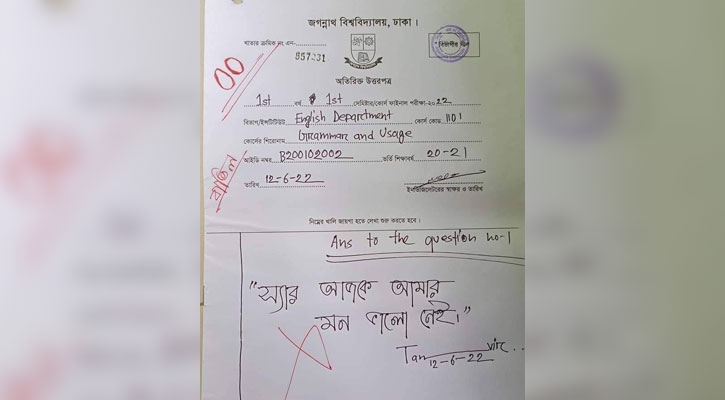 জগন্নাথ বিশ্ববিদ্যালয়, ঢাকা।
খাতার ক্রমিক নং এন- 857231
00
অতিরিক্ত উত্তরপত্র
1st বর্ষ 1st সেমিস্টার/কোর্স ফাইনাল পরীক্ষা-২০22
বিভাগ/ইনস্টিটিউট English Department কোর্স কোড 1101
কোর্সের শিরোনাম Grammar and Usage
আইডি নম্বর B200102002 ভর্তি শিক্ষাবর্ষ 20-21
বাতিল
তারিখ 12-6-22
ইনভিজিলেটরের স্বাক্ষর ও তারিখ
নিম্নের খালি জায়গা হতে লেখা শুরু করতে হবে।
Ans to the question no-1
"স্যার আজকে আমার
মন ভালো নেই।"
12-6-22